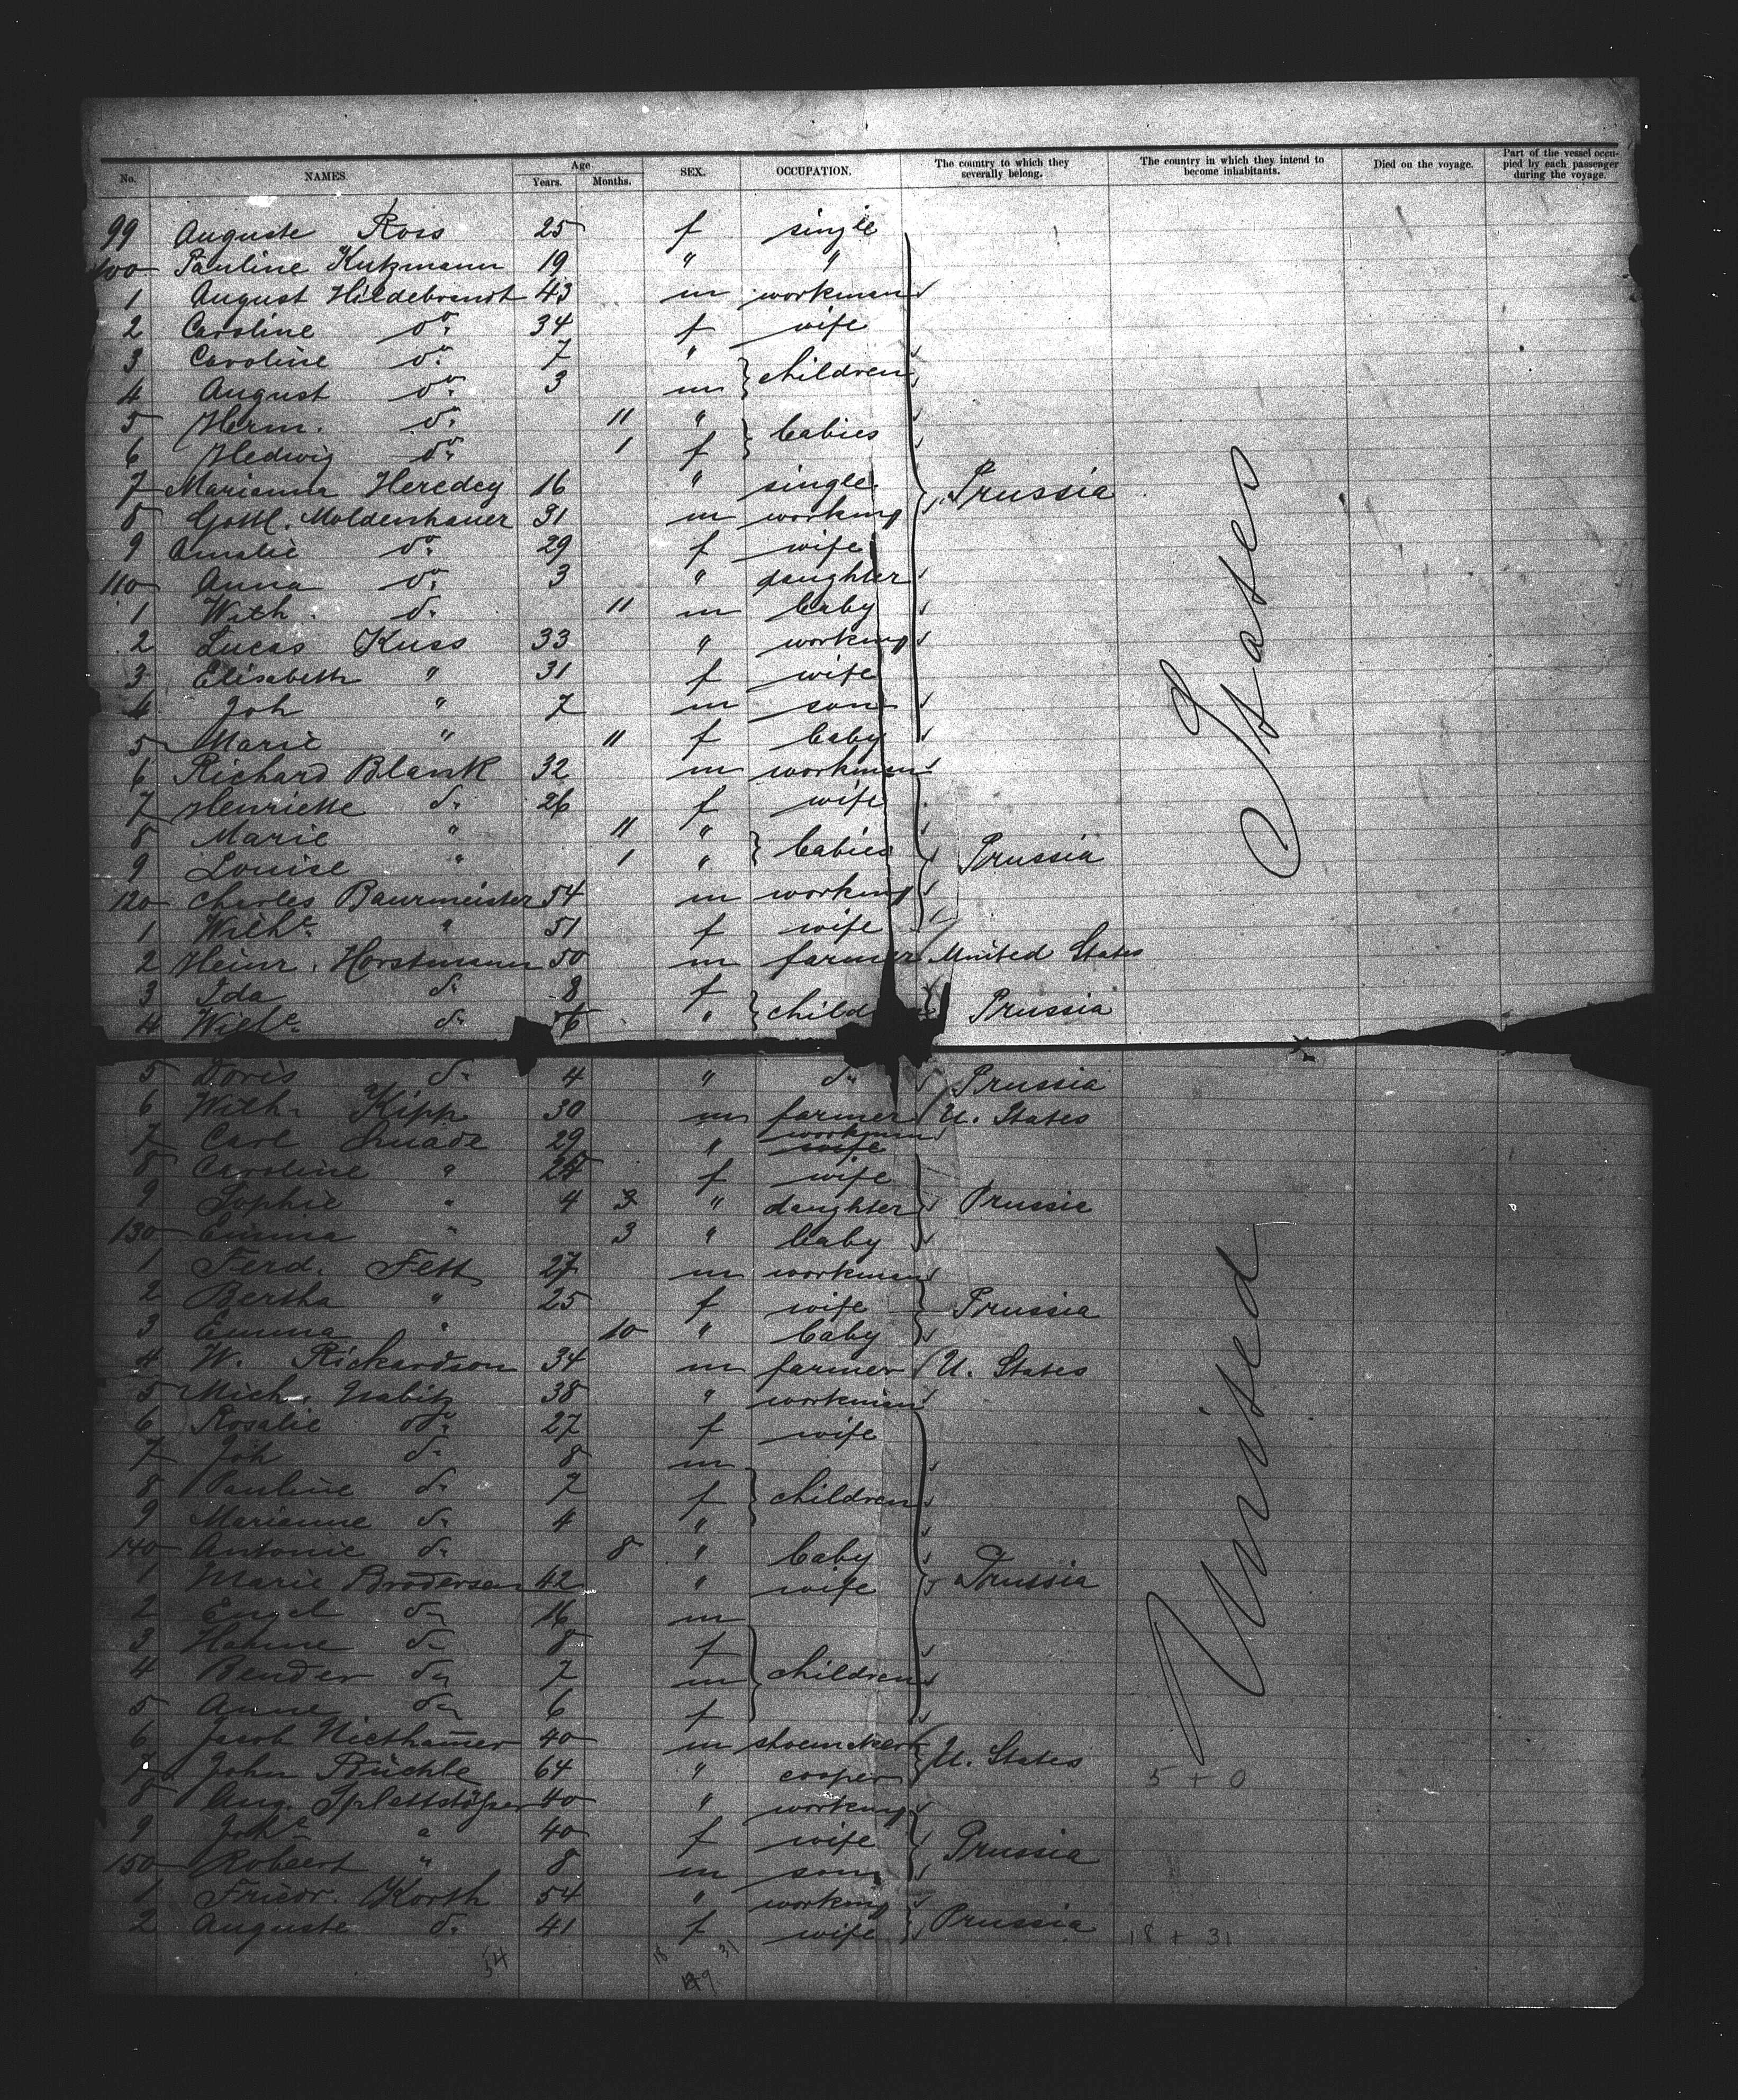 No. NAMES. Age Years. Months. SEX. OCCUPATION. The country to which they severally belong. The country in which they intend to become inhabitants. Died on the voyage. Part of the vessel occupied by each passenger during the voyage.
99 Auguste Ross 25 f single
100 Pauline Kutzmann 19 " "
1 August Hildebrandt 43 m workman
2 Caroline do. 34 f wife
3 Caroline do. 7 "
4 August do. 3 m } children
5 Herm. do. 11 "
6 Hedwig do. 1 f } babies
7 Marianna Heredey 16 " single } Prussia
8 Gottl. Moldenhauer 31 m working
9 Amalie do. 29 f wife
110 Anna do. 3 " daughter
1 Wilh. do. 11 m baby
2 Lucas Kuss 33 " working
3 Elisabeth " 31 f wife
4 Joh " 7 m son
5 Marie " 11 f baby
6 Richard Blank 32 m workman
7 Henriette do. 26 f wife
8 Marie " 11 "
9 Louise " 1 " } babies } Prussia
120 Charles Baurmeister 54 m working
1 Wilhe. " 51 f wife
2 Heinr. Horstmann 50 m farmer United States
3 Ida do. 8 f
4 Wilhe. do. 6 " } child } Prussia
5 Doris do. 4 " do. Prussia
6 Wilh. Kipp 30 m farmer U. States
7 Carl 29 " workman wife
8 Caroline " 24 f wife
9 Sophie " 4 3 " daughter } Prussia
130 Emma " 3 " baby
1 Ferd. Fett 27 m workman
2 Bertha " 25 f wife } Prussia
3 Emma " 10 " baby
4 W. Rickardson 34 m farmer U. States
5 Mich. 38 " workman
6 Rosalie do. 27 f wife
7 Joh do. 8 m
8 Pauline do. 7 f } children
9 Marianne do. 4 "
140 Antonie do. 8 " baby
1 Marie Brodersen 42 " wife } Prussia
2 Engel do. 16 m
3 Hanne do. 8 f
4 Bender do. 7 m } children
5 Anne do. 6 f
6 Jacob Niethamer 40 m shoemaker
7 John Rüchle 64 " cooper } U. States
8 Aug. Splettstößer 40 " working
9 Johe. " 40 f wife } Prussia
150 Robeert " 8 m son
1 Friedr. Korth 54 " working
2 Auguste do. 41 f wife } Prussia
United States
5 + 0
18 + 31
54 18 31
49